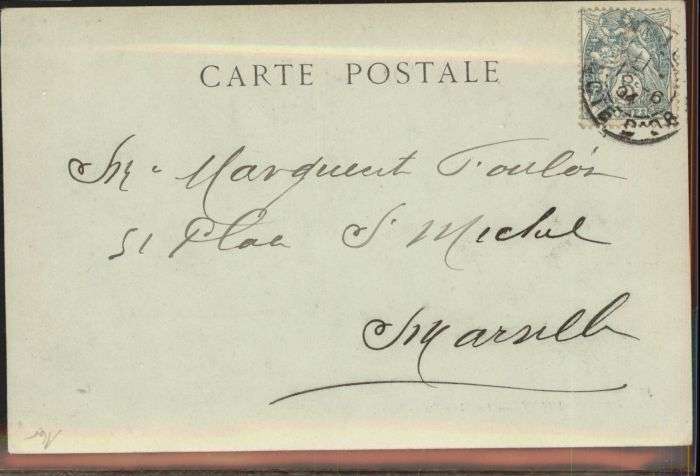 CARTE POSTALE
Mr Marguerit Toulon
51 Place St Michel
Marseille